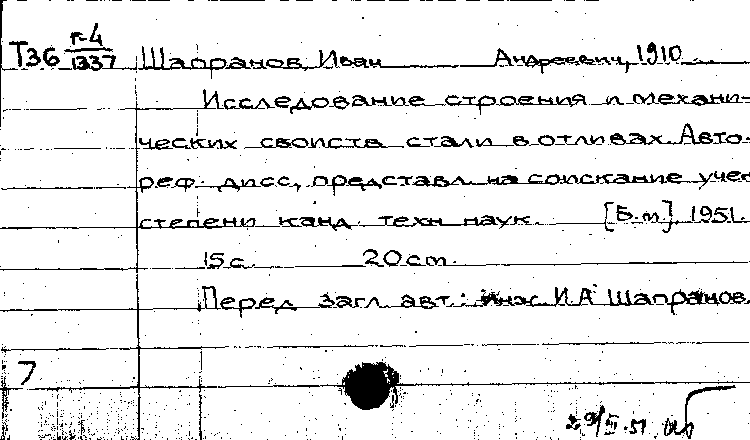 Т36 г-4/1337 Шапранов, Иван Андреевич, 1910
Исследование строения и механи-
ческих свойств стали в отливах. Авто-
реф. дисс., представл. на соискание учен
степени канд. техн наук. [Б.м], 1951.
15 с. 20 cm.
Перед загл. авт.: инж. И.А Шапранов.
7
29/III.51.